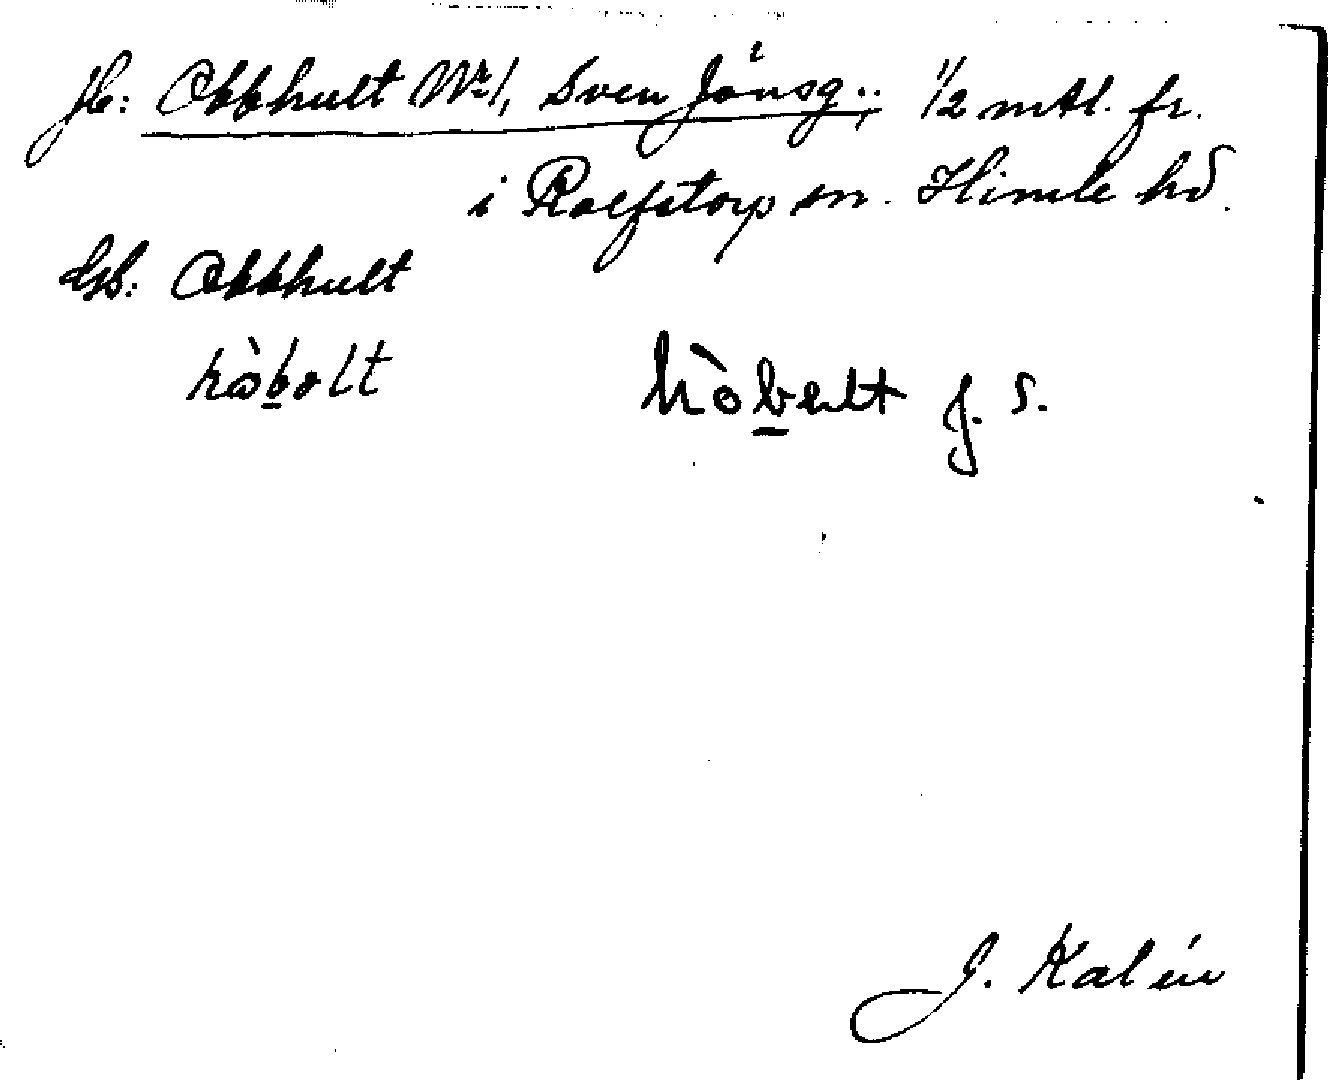 Jb: Obbhult Nr 1, Sven Jönsg.; 1/2 mtl. fr.
i Rolfstorp sn. Himle hd.
GS: Obbhult
hòbolt hòbelt J. S.
J. Kalén